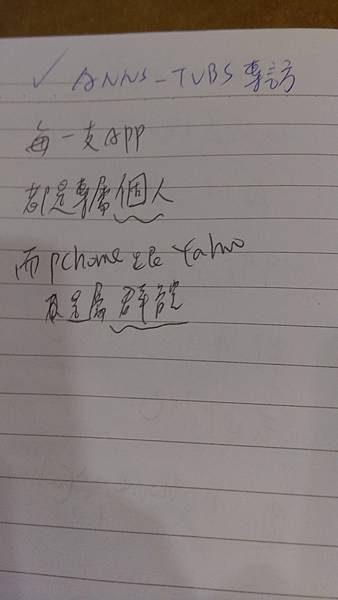 ✓ ANNS-TVBS 專訪
每一支APP
都是專屬個人
而pchome跟Yahoo
是屬群體